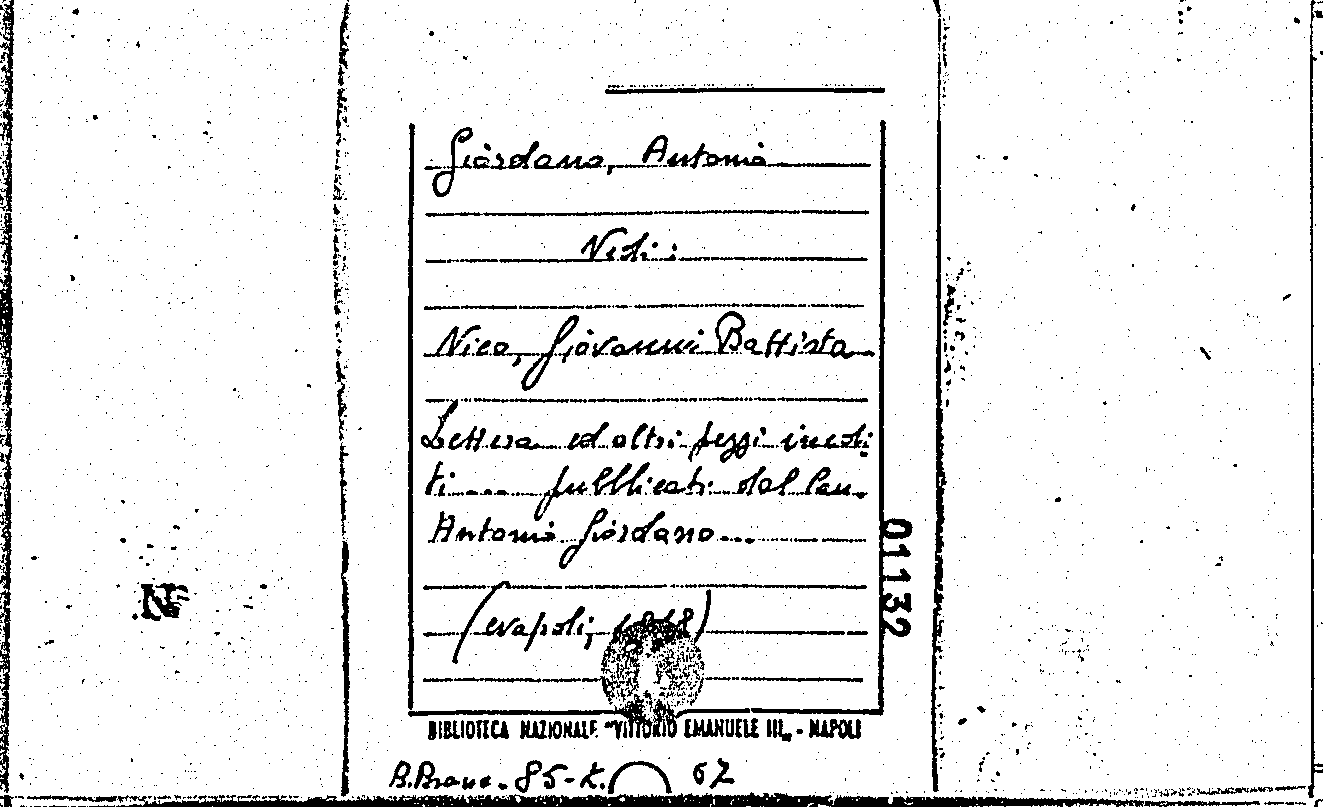 Giordano, Antonio
Vedi:
Vico, Giovanni Battista
Lettera ed altri pezzi inedi-
ti.... pubblicati dal Can.
Antonio Giordano...
(Napoli,
01132
BIBLIOTECA NAZIONALE "VITTORIO EMANUELE III„ - NAPOLI
B.Branc. 85-K. 67